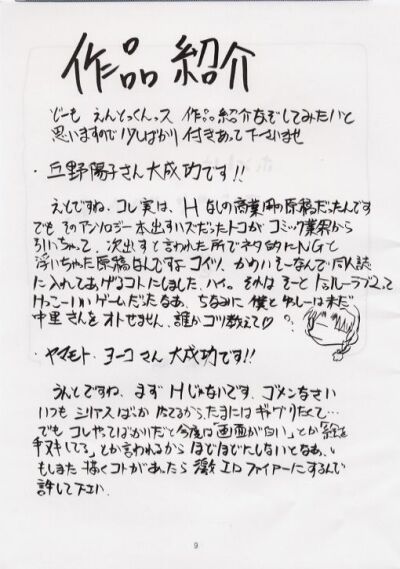 作品紹介
どーも えんとっくんっス 作品紹介なぞしてみたいと
思いますので 少しばかり 付きあって下さいませ
・丘野陽子さん大成功です!!
えとですね、コレ実は、Hなしの商業用の原稿だったんです
でも そのアンソロジー本出すハズだったトコがコミック業界から
引いちゃって、次出すと言われた所でネタ的にNGと
浮いちゃった原稿なんですよコイツ、かわいそーなんで同人誌
に入れてあげるコトにしました、ハイ。それは そーと トゥルーラブって
けっこーいいゲームだったなあ、ちなみに 僕と は未だ
中里さんをオトせません、誰かコツ教えて♡
・ヤマモト・ヨーコさん 大成功です!!
えとですね、まず Hじゃないです、ゴメンなさい
いつも シリアスばっか だから、たまにはギャグりたくて…
でも コレやってばかりだと今度は「画面が白い」とか「絵を
手ヌキしてる」とか言われるから ほどほどにしないとなあ、
もしまた 描くコトがあったら 激エロファイアーにするんで
許して下さい
9